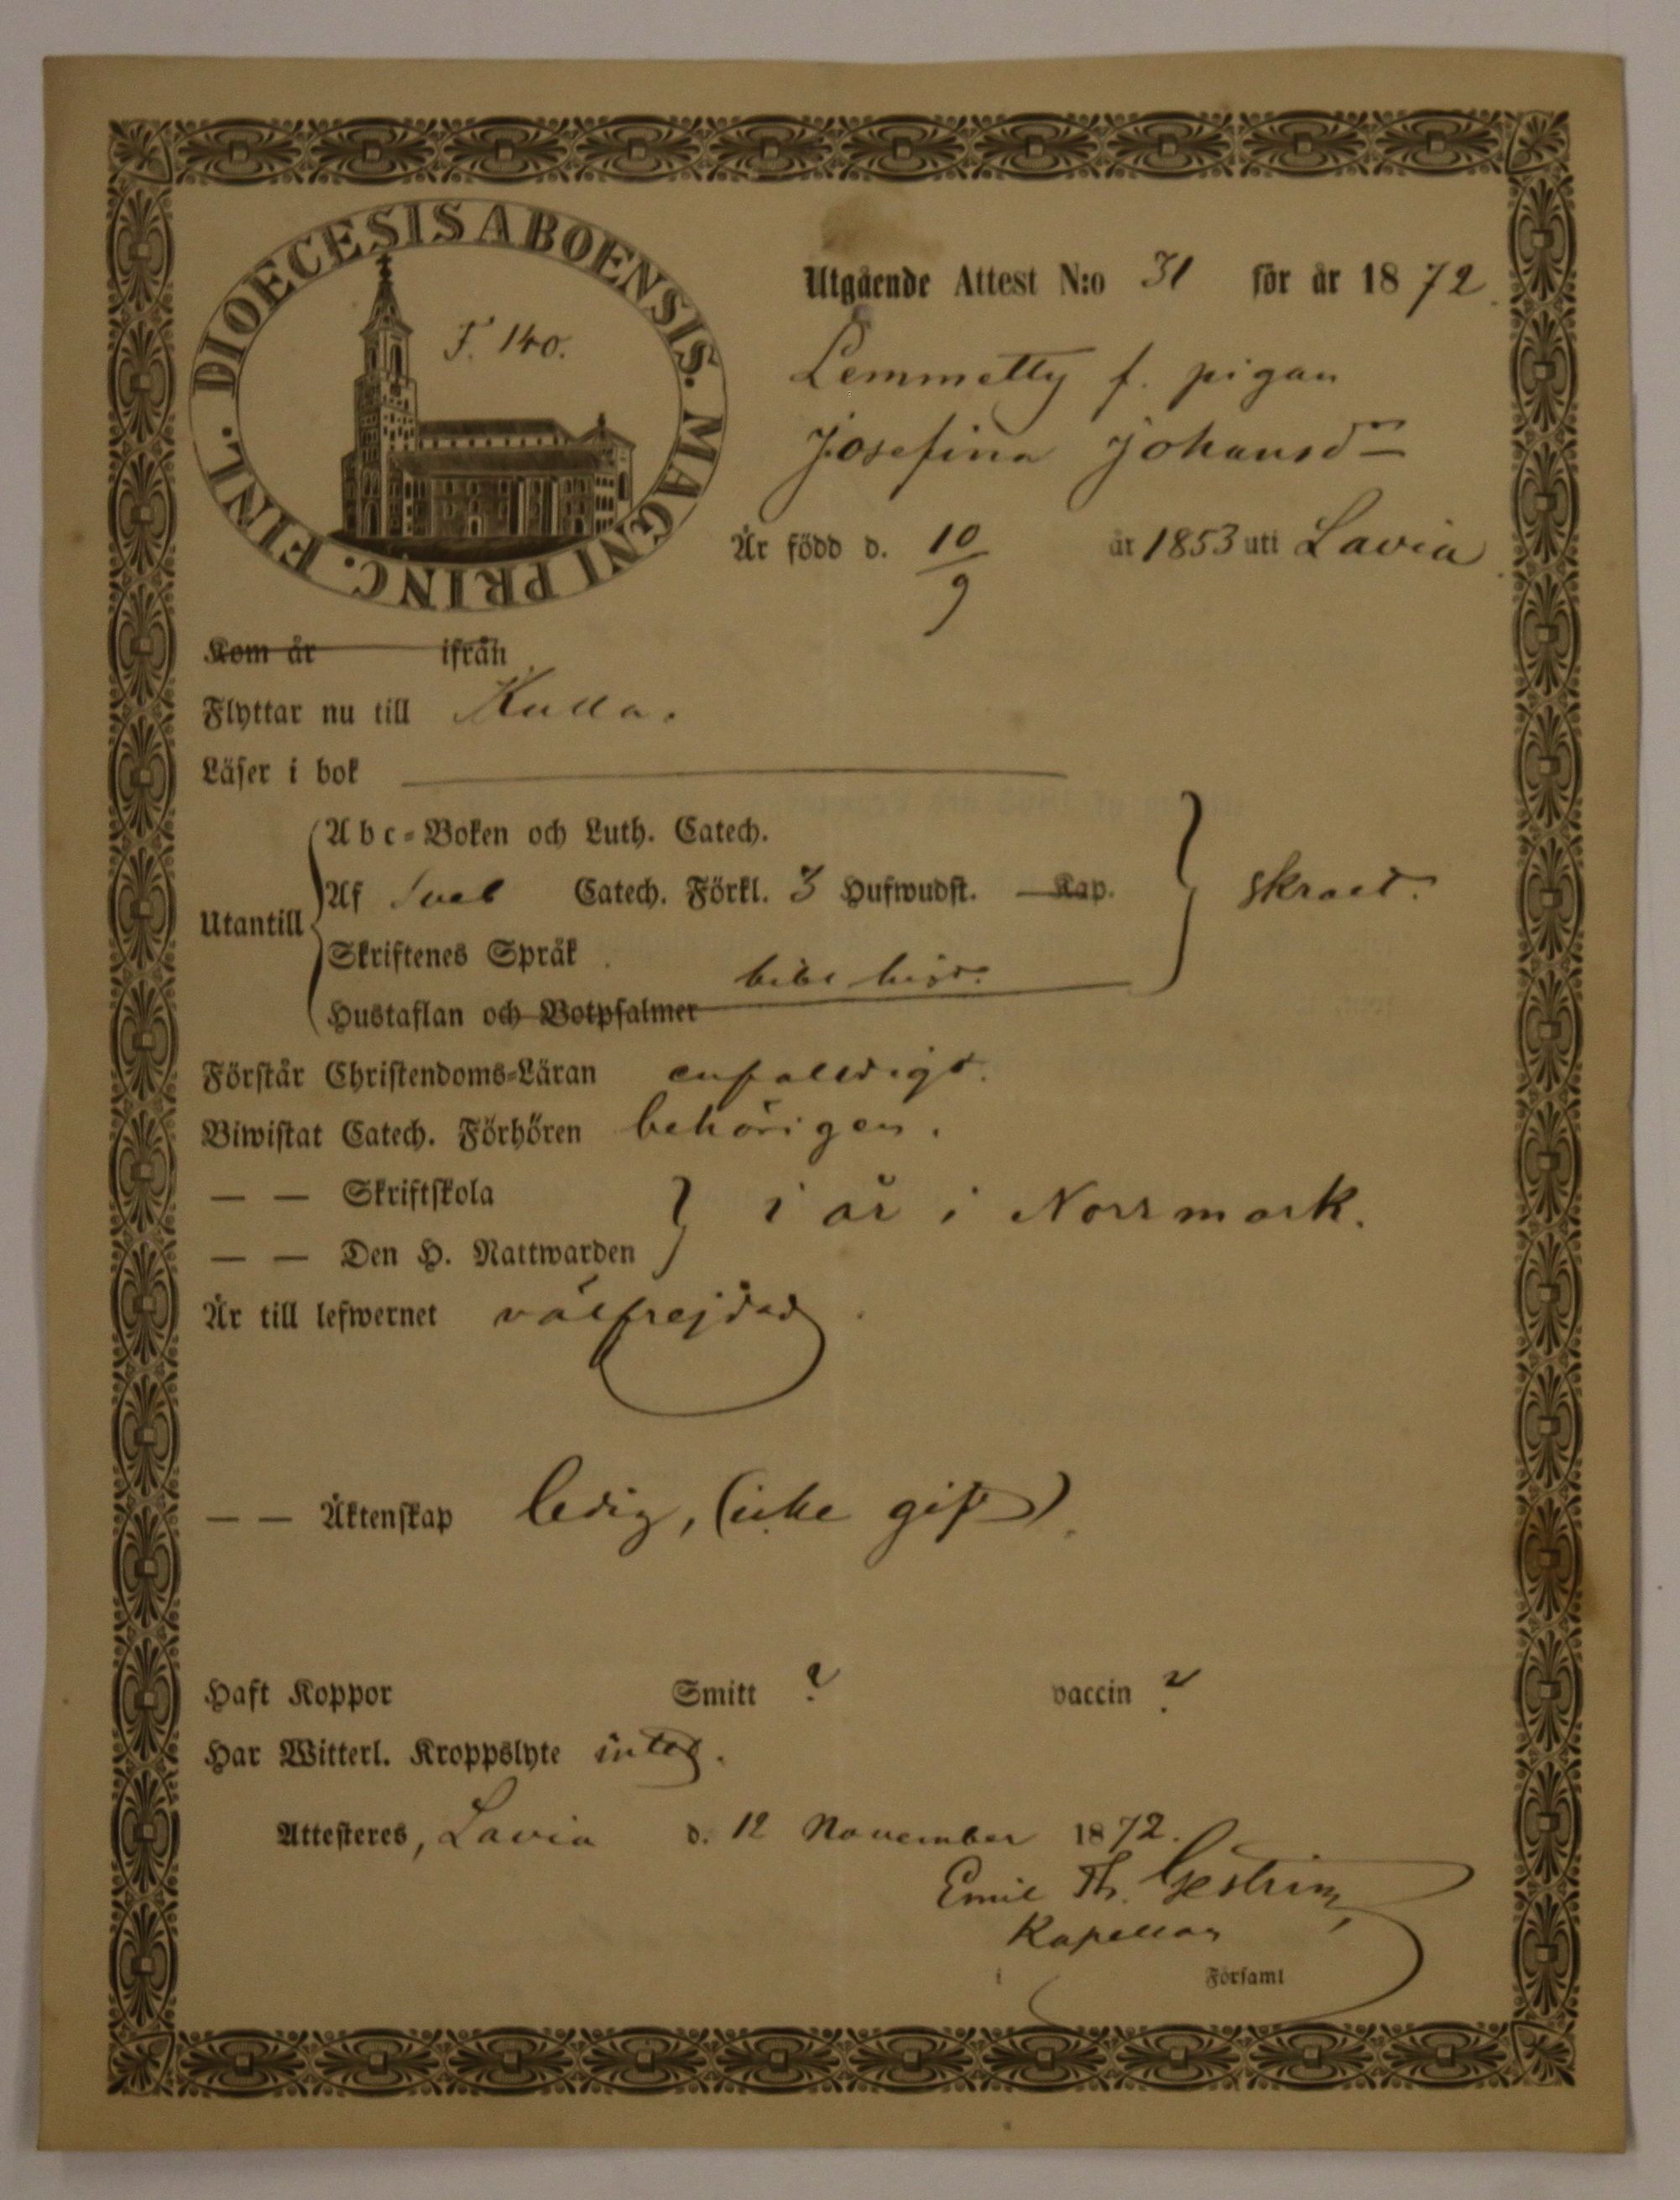 DIOECESIS ABOENSIS. MAGNI PRINC. FINL.
F. 140.
Utgående Attest N:o 31 för år 1872.
Lemmetty f. pigan
Josefina Johansdr
Är född d. 10/9 år 1853 uti Lavia
Kom år ifrån
Flyttar nu till Kulla.
Läser i bok
Utantill
Abc-Boken och Luth. Catech.
Af Sveb Catech. Förkl. 3 Hufwudst. Kap.
Skriftenes Språk
bibl. hist.
Hustaflan och Botpsalmer
Förstår Christendoms-Läran enfalldigt.
Biwistat Catech. Förhören behörigen.
— — Skriftskola
i år i Norrmark.
— — Den H. Nattwarden
Är till lefwernet välfrejdad
— — Äktenskap ledig, (icke gift).
Haft Koppor Smitt ? vaccin ?
Har Witterl. Kroppslyte intet.
Attesteres, Lavia d. 12 November 1872.
Emil Th. Gestrin,
Kapellan
i Församl